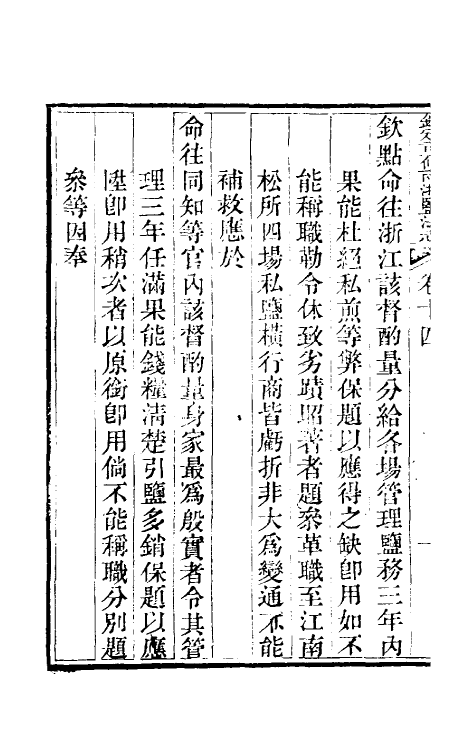 欽點命往浙江該督酌量分給各場管理鹽務三年內
果能杜絕私煎等弊保題以應得之缺卽用如不
能稱職勒令休致劣蹟昭著者題叅革職至江南
松所四場私鹽橫行商皆虧折非大爲變通不能
補救應於
命往同知等官內該督酌量身家最爲殷實者令其管
理三年任滿果能錢糧淸楚引鹽多銷保題以應
陞卽用稍次者以原銜卽用倘不能稱職分別題
叅等因奉